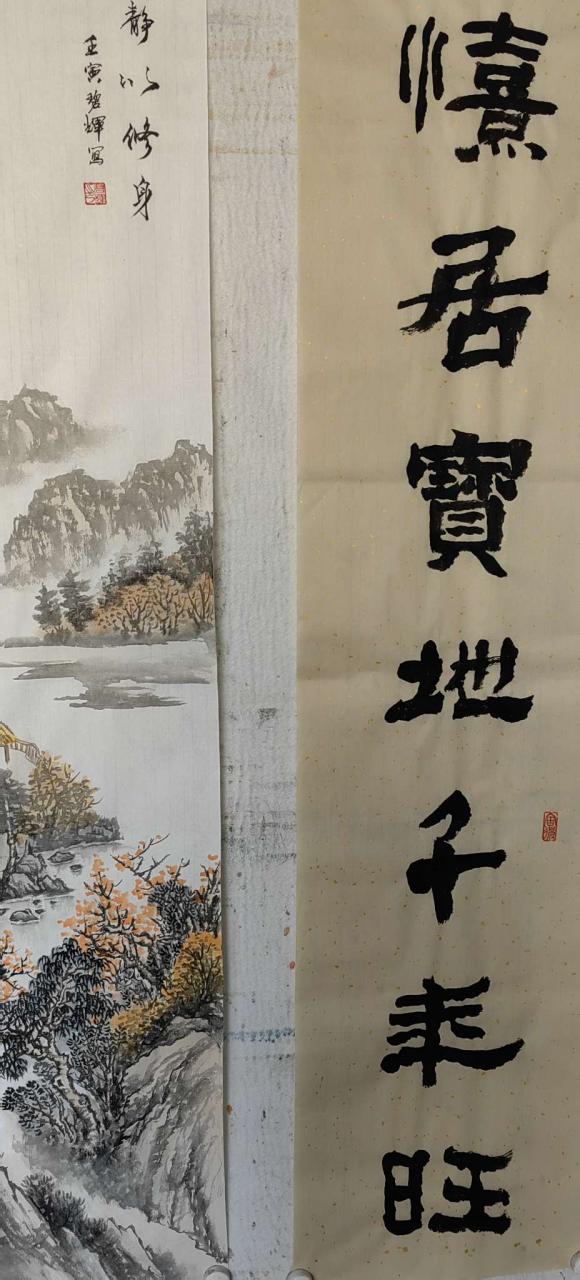 憘居寶地千年旺
靜以修身
壬寅碧輝寫